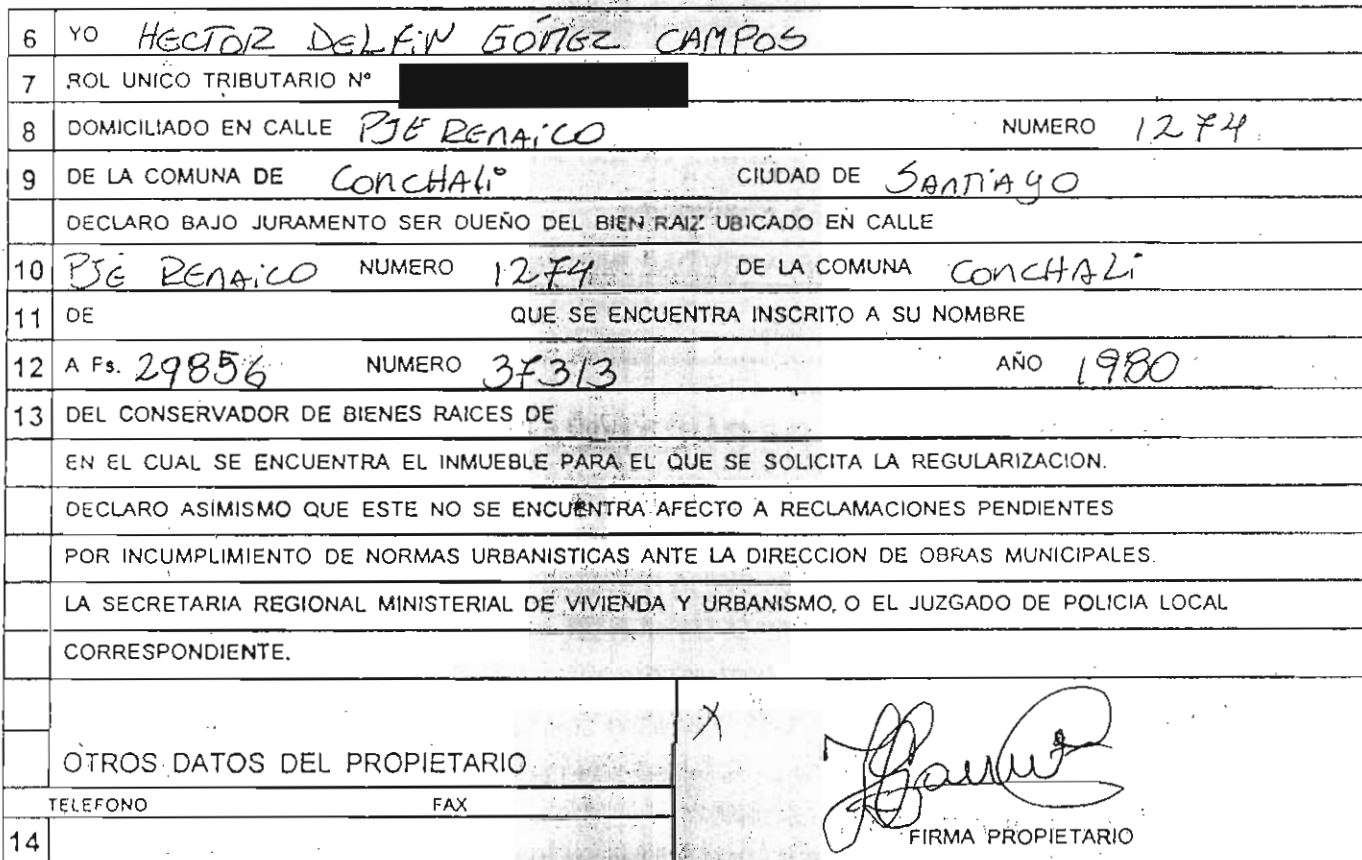 6 YO HECTOR DELFIN GÓMEZ CAMPOS
7 ROL UNICO TRIBUTARIO N°
8 DOMICILIADO EN CALLE PJE RENAiCO NUMERO 1274
9 DE LA COMUNA DE CONCHALi CIUDAD DE SANTiAGO
DECLARO BAJO JURAMENTO SER DUEÑO DEL BIEN RAIZ UBICADO EN CALLE
10 PJE RENAiCO NUMERO 1274 DE LA COMUNA CONCHALi
11 DE QUE SE ENCUENTRA INSCRITO A SU NOMBRE
12 A Fs. 29856 NUMERO 37313 AÑO 1980
13 DEL CONSERVADOR DE BIENES RAICES DE
EN EL CUAL SE ENCUENTRA EL INMUEBLE PARA EL QUE SE SOLICITA LA REGULARIZACION.
DECLARO ASIMISMO QUE ESTE NO SE ENCUENTRA AFECTO A RECLAMACIONES PENDIENTES
POR INCUMPLIMIENTO DE NORMAS URBANISTICAS ANTE LA DIRECCION DE OBRAS MUNICIPALES.
LA SECRETARIA REGIONAL MINISTERIAL DE VIVIENDA Y URBANISMO, O EL JUZGADO DE POLICIA LOCAL
CORRESPONDIENTE.
X
OTROS DATOS DEL PROPIETARIO
TELEFONO FAX
14 FIRMA PROPIETARIO